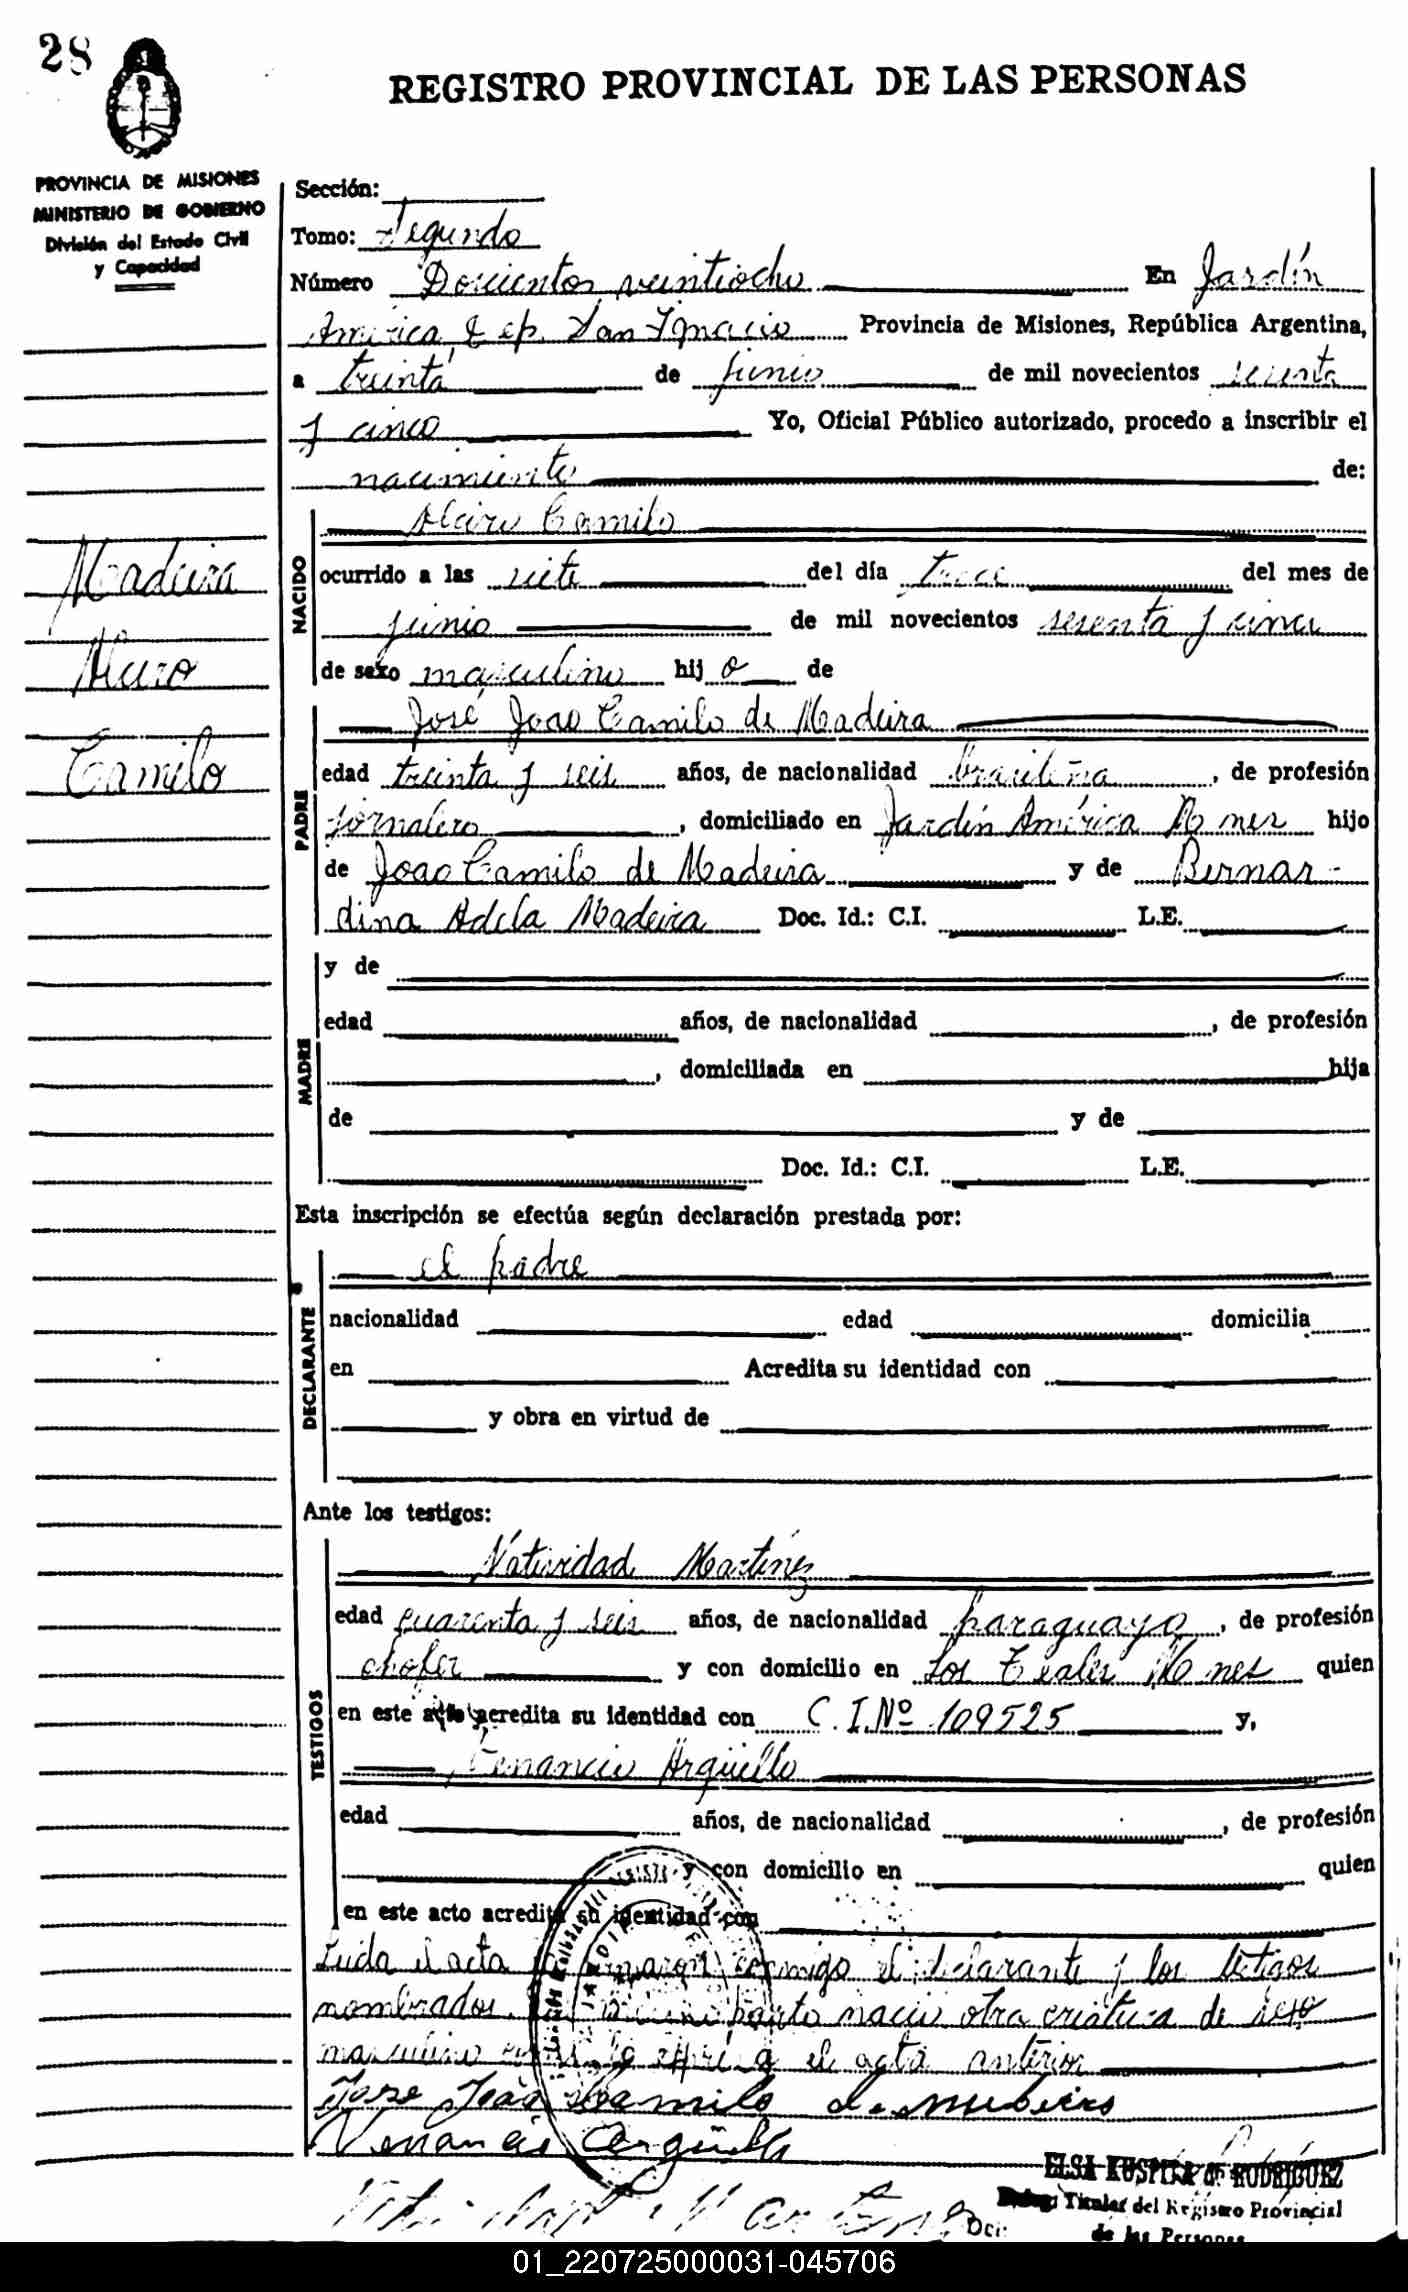 28
REGISTRO PROVINCIAL DE LAS PERSONAS
PROVINCIA DE MISIONES
MINISTERIO DE GOBIERNO
División del Estado Civil
y Capacidad
Sección:
Tomo: Segundo
Número Doscientos veintiocho En Jardín
América, Dep. San Ignacio Provincia de Misiones, República Argentina,
a treinta de junio de mil novecientos sesenta
y cinco Yo, Oficial Público autorizado, procedo a inscribir el
nacimiento de:
Madeira
Camilo
NACIDO
Camilo
ocurrido a las siete del día trece del mes de
junio de mil novecientos sesenta y cinco
de sexo masculino hij o de
PADRE
José Joao Camilo de Madeira
edad treinta y seis años, de nacionalidad brasileña, de profesión
jornalero, domiciliado en Jardín América Mnes hijo
de Joao Camilo de Madeira y de Bernar-
dina Adela Madeira Doc. Id.: C.I. L.E.
MADRE
y de
edad años, de nacionalidad , de profesión
, domiciliada en hija
de y de
Doc. Id.: C.I. L.E.
Esta inscripción se efectúa según declaración prestada por:
DECLARANTE
el padre
nacionalidad edad domicilia
en Acredita su identidad con
y obra en virtud de
Ante los testigos:
TESTIGOS
Natividad Martínez
edad cuarenta y seis años, de nacionalidad paraguaya, de profesión
chofer y con domicilio en Los Teales Mnes quien
en este acto acredita su identidad con C.I.Nº 109525 y,
Venancio Argüello
edad años, de nacionalidad , de profesión
y con domicilio en quien
en este acto acredita su identidad con
Leida el acta la firmaron conmigo el declarante y los testigos
nombrados. parto nacio otra criatura de sexo
masculino el acta anterior
Jose Joao Camilo de
Venancio Argüello
ELSA KUSPITA de RODRIGUEZ
Titular del Registro Provincial
de las Personas
01_220725000031-045706